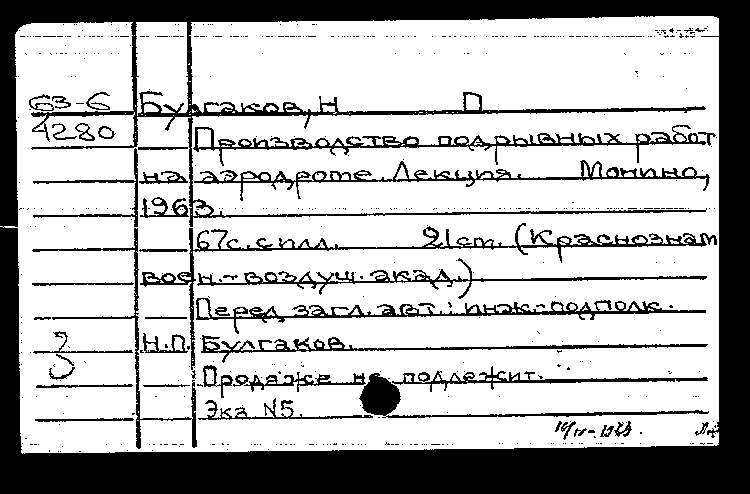 63-6 Булгаков, Н П
4280 Производство подрывных работ
на аэродроме. Лекция. Монино,
1963.
67с. с илл. 21 см. (Краснознам
воен.-воздуш. акад.)
Перед загл. авт.: инж.-подполк.
З Н.П. Булгаков.
Продаже не подлежит.
Экз N5.